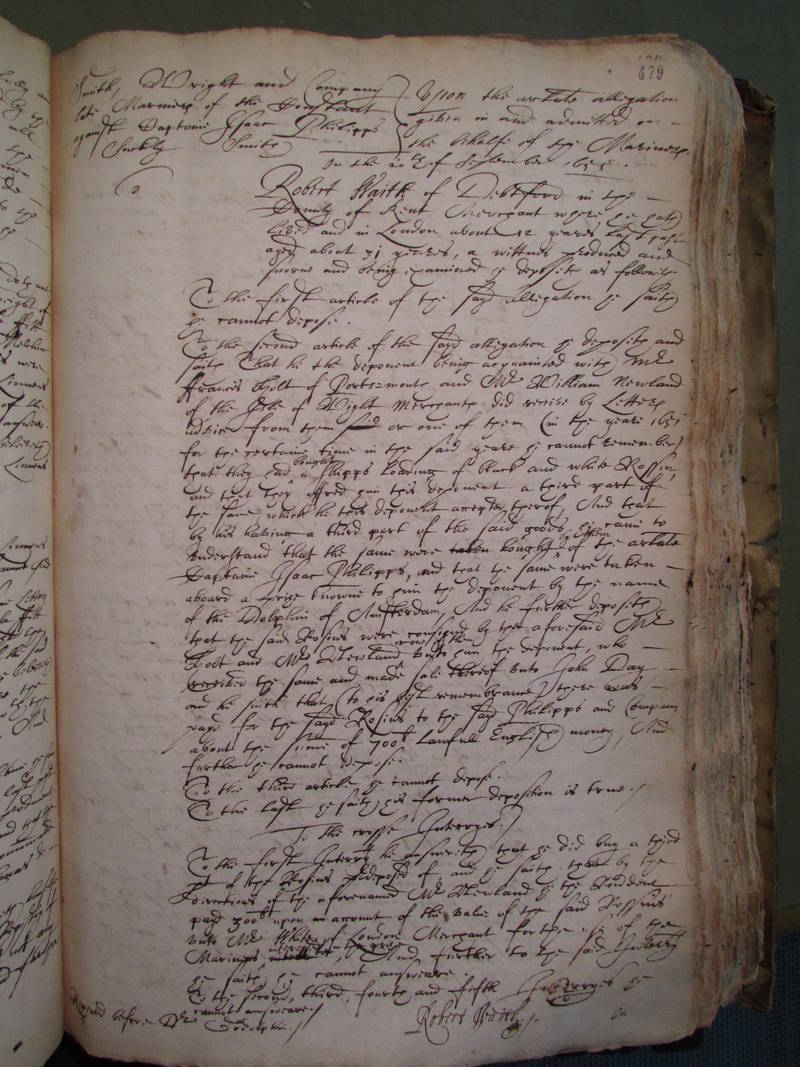 479
Smith, Wright and Company
late Marriners of the Constant
against Captaine Isaac Philipps
Suckly Smith
Upon the arlate allegation
given in and admitted on
the behalfe of the Mariners.
On the 20th of September 1655.
2
Robert Waith of Debtford in the
County of Kent Merchant where he hath
lived and in London about 12 yeares last past
aged about 31 yeares, a wittnes produced and
sworne and being examined he deposeth as followeth
To the first article of the sayd allegation he saith
he cannot depose.
To the second article of the sayd allegation he deposeth and
saith That he the deponent being acquainted with Mr
Francis Holt of Portsmouth and Mr William Newland
of the Isle of Wight Merchants did receive by Letters
advice from them or one of them (in the yeare 1651
for the certaine time in the said yeare he cannot remember)
that they had bought a shipps loading of black and white Rossin,
and that they offred him this deponent a third part of
the same which he this deponent accepted thereof, And that
by his taking a third part of the said goods, he came to
understand that the same were taken bought of the arlate
Captaine Isaac Philipps, and that the same were taken
aboard a Prize knowne to him the deponent by the name
of the Dolphin of Amsterdam, And he further deposeth
that the said Rosins were consigned by the aforesaid Mr
Holt and Mr Newland unto him the deponent, who
received the same and made sale thereof unto John Day
and he saith that (to his best remembrance) there was
payd for the sayd Rosins to the sayd Philipps and Company
about the summe of 700li lawfull English money, And
further he cannot depose.
To the third article he cannot depose.
To the last he saith his former deposition is true./
To the crosse Interries./
To the first Interrie he answereth that he did buy a third
pt of the Rosins predeposed of, and he saith that by the
directions of the aforenamed Mr Newland he the Rendent
payd 300li upon an account of the value of the said Rossins
unto Mr White of London Merchant for the use of the
Mariners interested in the prize, And further to the said Interrie
he saith he cannot answeare.
To the second, third, fourth and fifth Interries he
cannot answeare./
Repeated before Dr
Godolphin./
Robert Waith./
On